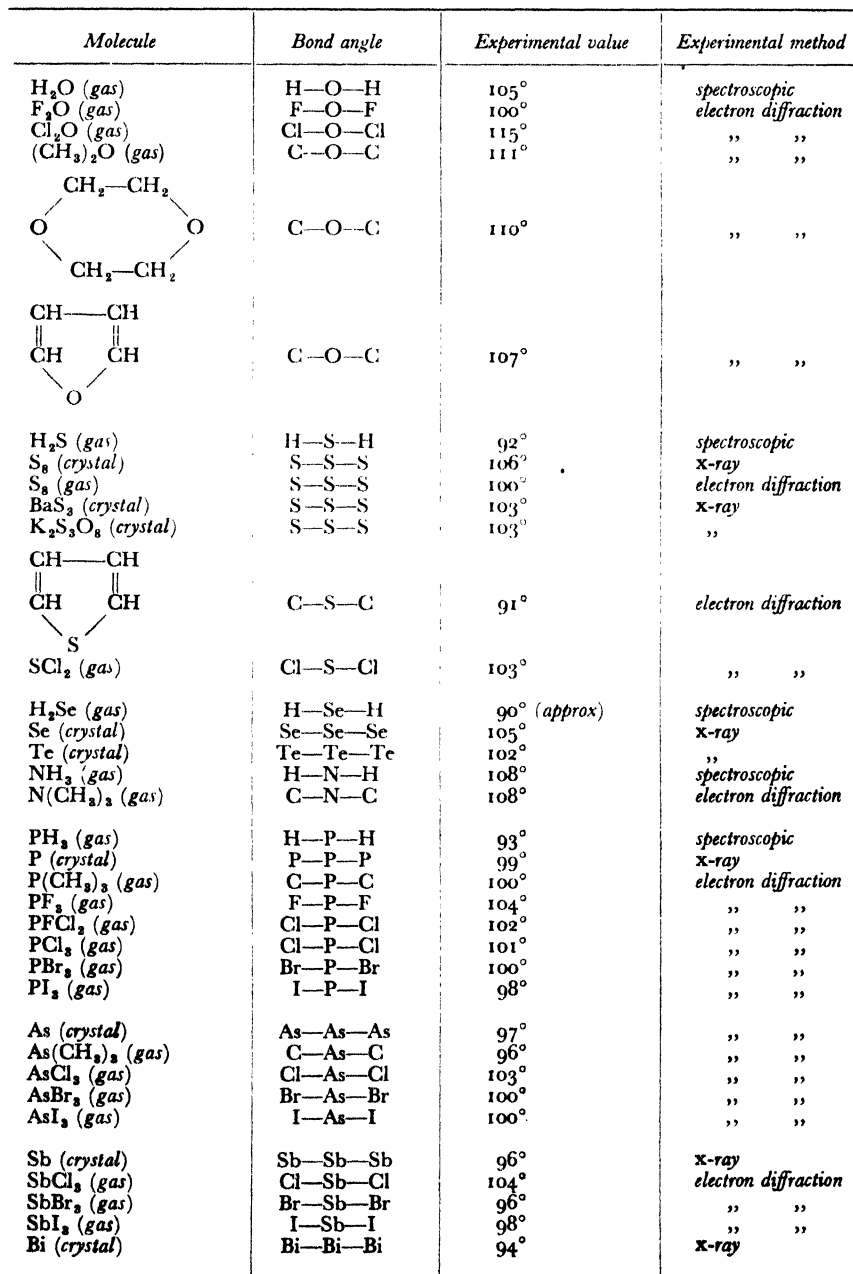 Molecule Bond angle Experimental value Experimental method
H₂O (gas) H—O—H 105° spectroscopic
F₂O (gas) F—O—F 100° electron diffraction
Cl₂O (gas) Cl—O—Cl 115° ,, ,,
(CH₃)₂O (gas) C—O—C 111° ,, ,,
CH₂—CH₂
O O C—O—C 110° ,, ,,
CH₂—CH₂
CH—CH
CH CH C—O—C 107° ,, ,,
O
H₂S (gas) H—S—H 92° spectroscopic
S₈ (crystal) S—S—S 106° x-ray
S₈ (gas) S—S—S 100° electron diffraction
BaS₃ (crystal) S—S—S 103° x-ray
K₂S₃O₈ (crystal) S—S—S 103° ,,
CH—CH
CH CH C—S—C 91° electron diffraction
S
SCl₂ (gas) Cl—S—Cl 103° ,, ,,
H₂Se (gas) H—Se—H 90° (approx) spectroscopic
Se (crystal) Se—Se—Se 105° x-ray
Te (crystal) Te—Te—Te 102° ,,
NH₃ (gas) H—N—H 108° spectroscopic
N(CH₃)₃ (gas) C—N—C 108° electron diffraction
PH₃ (gas) H—P—H 93° spectroscopic
P (crystal) P—P—P 99° x-ray
P(CH₃)₃ (gas) C—P—C 100° electron diffraction
PF₃ (gas) F—P—F 104° ,, ,,
PFCl₂ (gas) Cl—P—Cl 102° ,, ,,
PCl₃ (gas) Cl—P—Cl 101° ,, ,,
PBr₃ (gas) Br—P—Br 100° ,, ,,
PI₃ (gas) I—P—I 98° ,, ,,
As (crystal) As—As—As 97° ,, ,,
As(CH₃)₃ (gas) C—As—C 96° ,, ,,
AsCl₃ (gas) Cl—As—Cl 103° ,, ,,
AsBr₃ (gas) Br—As—Br 100° ,, ,,
AsI₃ (gas) I—As—I 100° ,, ,,
Sb (crystal) Sb—Sb—Sb 96° x-ray
SbCl₃ (gas) Cl—Sb—Cl 104° electron diffraction
SbBr₃ (gas) Br—Sb—Br 96° ,, ,,
SbI₃ (gas) I—Sb—I 98° ,, ,,
Bi (crystal) Bi—Bi—Bi 94° x-ray